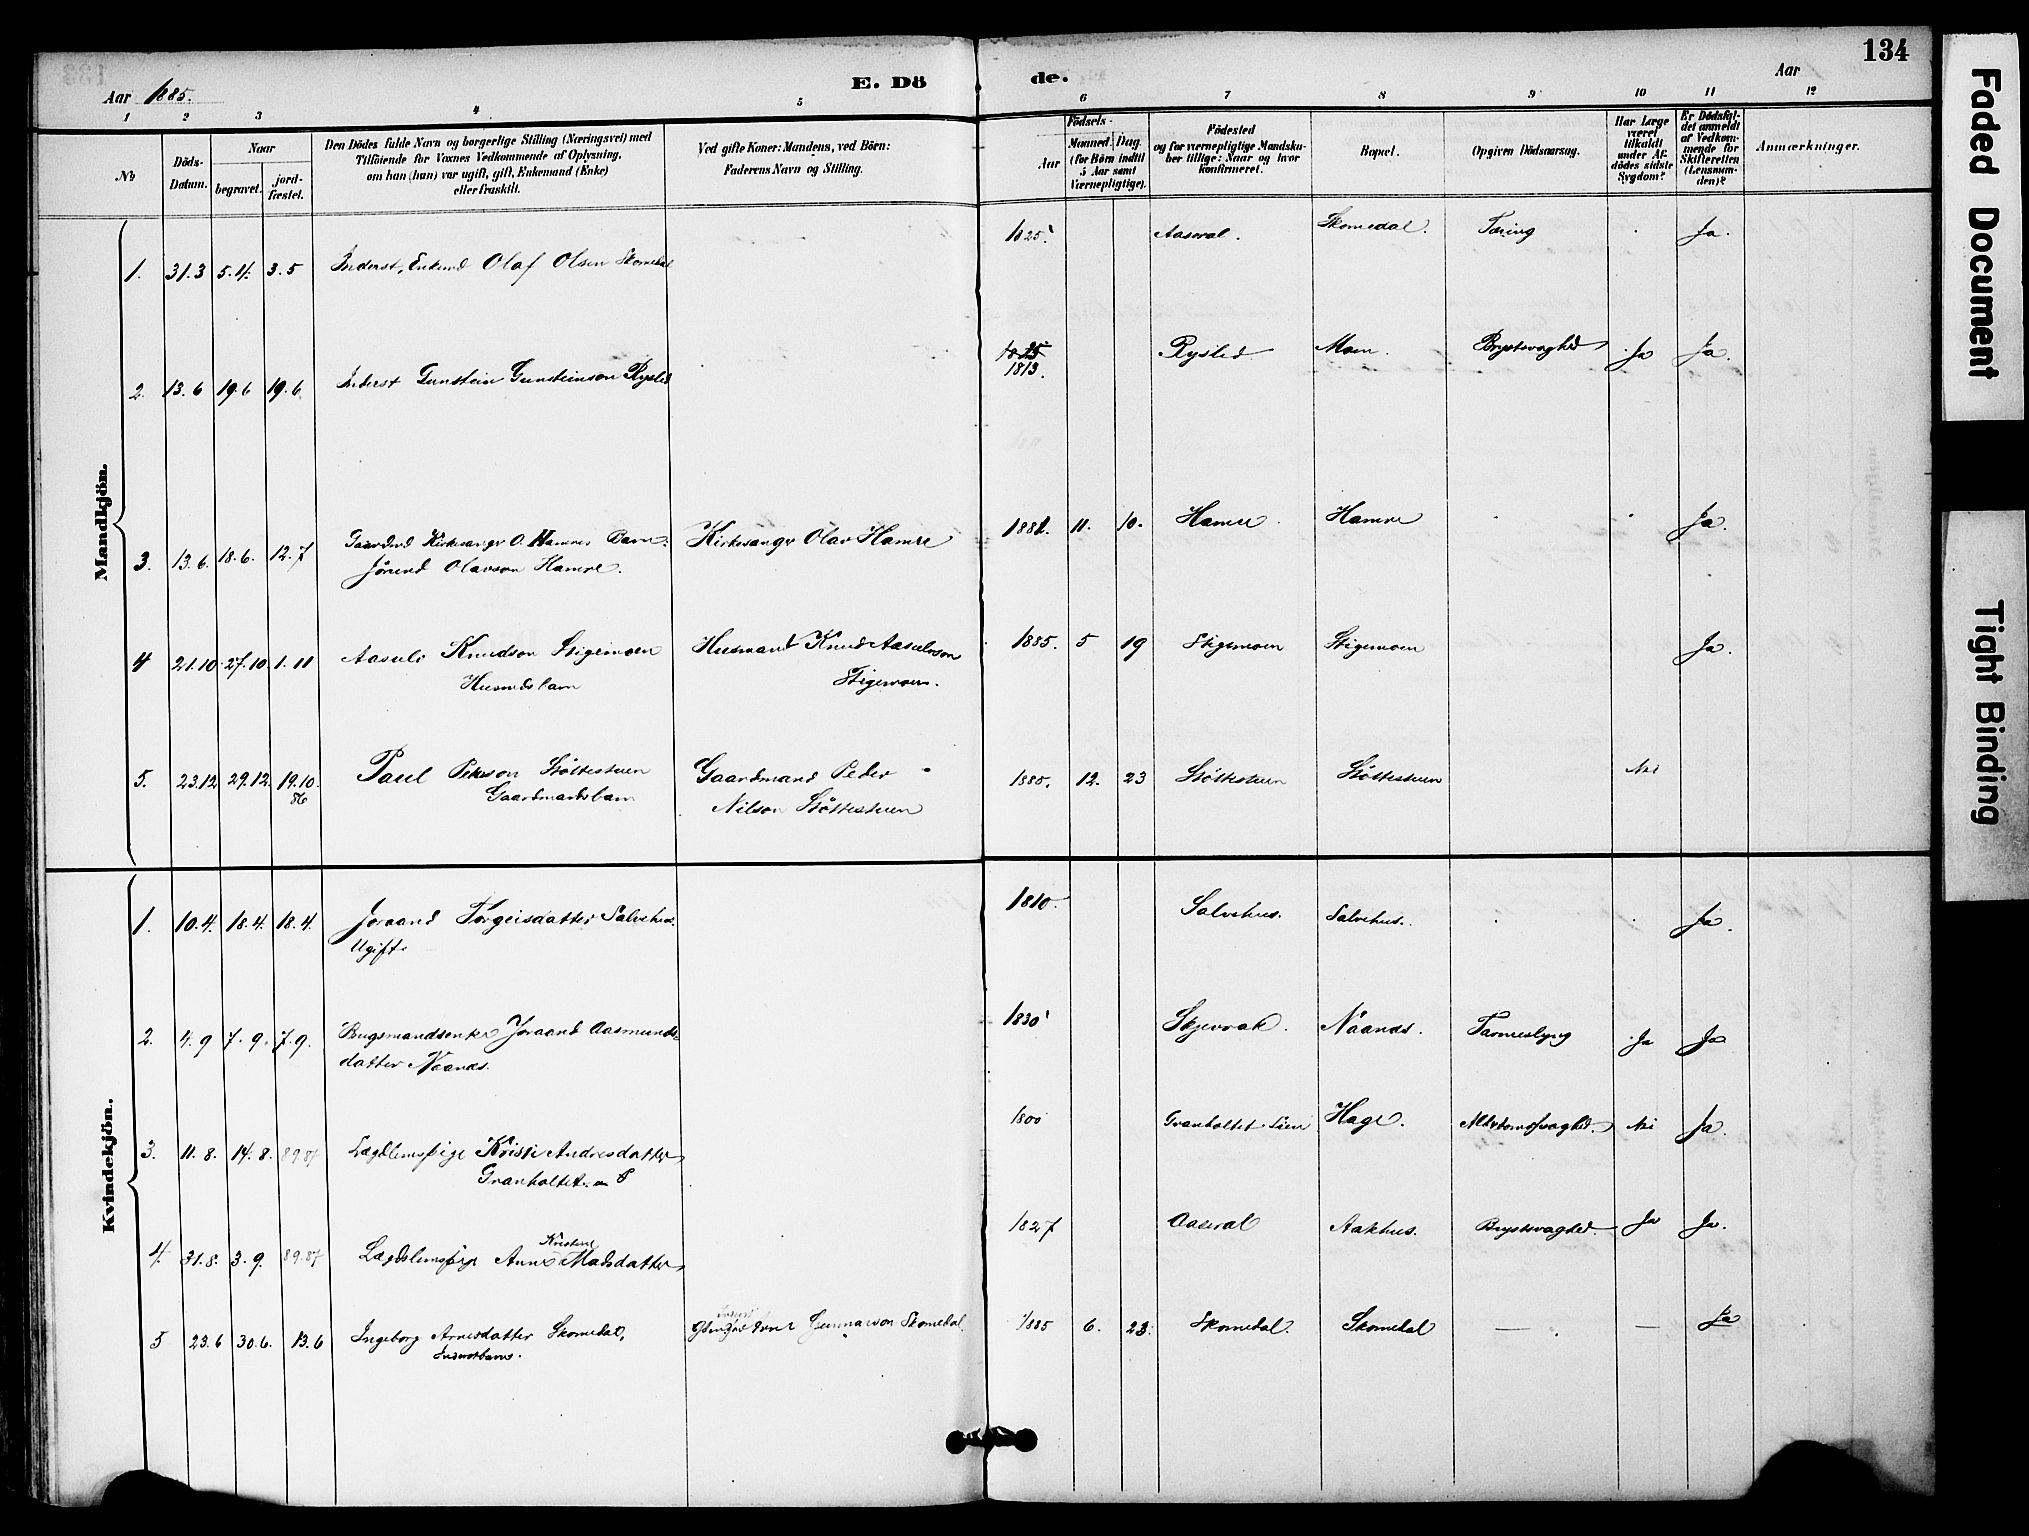 134
Aar 1885.
E. Döde.
Aar
1 2 3 4 5 6 7 8 9 10 11 12
No
Döds-Datum.
Naar
begravet.
jord-fæstet.
Den Dödes fulde Navn og borgerlige Stilling (Næringsvei) med
Tilföiende for Voxnes Vedkommende af Oplysning,
om han (hun) var ugift, gift, Enkemand (Enke)
eller fraskilt.
Ved gifte Koner: Mandens, ved Börn:
Faderens Navn og Stilling.
Födsels-
Aar
Maaned. Dag.
(for Börn indtil
5 Aar samt
Værnepligtige).
Födested
og for værnepligtige Mandsku-
ber tillige: Naar og hvor
konfirmeret.
Bopæl.
Opgiven Dödsaarsag.
Har Læge
været
tilkaldt
under Af-
dödes sidste
Sygdom?
Er Dödsfal-
det anmeldt
af Vedkom-
mende for
Skifteretten
(Lensman-
den)?
Anmærkninger.
Mandkjön.
1. 31.3 5.4. 3.5 Inderst, Enkmd Olaf Olsen Skomedal 1825. Aaseral. Skomedal. Tæring Ja.
2. 13.6 19.6 19.6 Inderst Gunstein Gunsteinson Rysted 1825 1813. Rysted Moen. Brystsvaghed Ja Ja.
3. 13.6. 18.6. 12.7 Gaardmd Kirkesangr O. Hamres Barn:
Jörund Olavson Hamre. Kirkesangr Olav Hamre 1881. 11. 10. Hamre Hamre Ja.
4 21.10. 27.10. 1.11 Aasulv Knudson Stigemoen
Husmdsbarn Husmand Knud Aasulvson
Stigemoen. 1885. 5 19 Stigemoen Stigemoen Ja.
5. 23.12 29.12. 19.10. 86 Paul Person Stöttestuen
Gaardmandsbarn Gaardmand Peder
Nilson Stöttestuen 1885. 12. 23 Stöttestuen Stöttestuen Nei
Kvindekjön.
1. 10.4. 18.4. 18.4. Joraand Torgeisdatter Salvehus.
Ugift. 1810. Salvehus. Salvehus. Ja.
2. 4.9 7.9. 7.9. Brugsmandsenke Joraand Aasmunds-
datter Naands. 1830 Skjevrak. Naands. Tarmeslyng Ja Ja
3. 11.8. 14.8. 8 9.87 Lægdlemspige Kristi Andresdatter
Granholtet 1800 Granholtet Hage. Alderdomssvaghed. Nei Ja.
4. 31.8. 3.9. 8 9.87 Lægdslemspige Anne Kristine Madsdatter 1827 Aaseral Aakhus. Brystsvaghed. Ja Ja.
5 23.6 30.6. 13.6 Ingeborg Arnesdatter Skomedal,
Inderstbarn. Arne Gunnarson Skomedal. 1885 6. 23. Skomedal. Skomedal — — Ja
Faded Document
Tight Binding